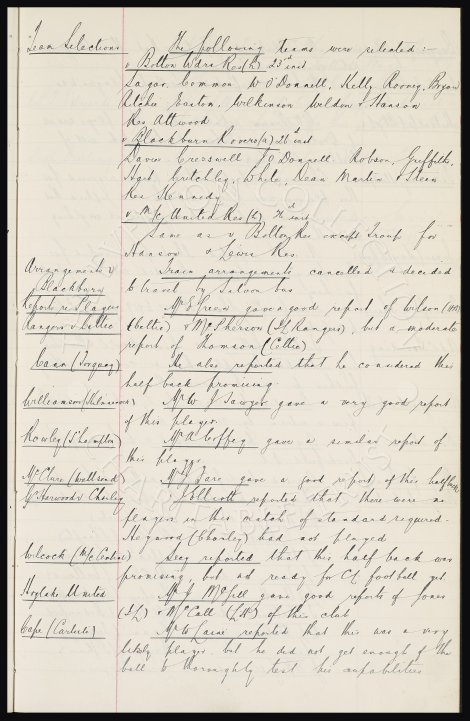 Team Selections The following teams were selected :-
v Bolton Wdrs Res (h) 23rd inst
Sagar, Common W O'Donnell, Kelly Rooney, Bryan
Ritchie Easton, Wilkinson Weldon & Hanson
Res Attwood
v Blackburn Rovers (a) 26th inst
Davies Cresswell J O'Donnell Robson, Griffiths,
Hart Critchley, White, Dean Martin & Stein
Res Kennedy
v M/c United Res (h) inst
Same as v Bolton Res except Troup for
Hanson & Lewis Res
Arrangements v Train arrangements cancelled & decided
Blackburn to travel by Silvon bus
Reports re Players Mr E Green gave a good report of Wilson
Rangers v Celtic (Celtic) & McPherson (IL Rangers), but a moderate
report of Thomson (Celtic)
Cann (Torquay) He also reported that he considered this
half back promising
Williamson (Kilmarnock) Mr W J Sawyer gave a very good report
of this player.
Rowley (S'hampton) Mr A Coffey gave a similar report of
this player
McClure (Wallsend) Mr gave a good report of this half back
Harwood v Chorley J Elliott reported that there were no
players in this match of standard required.
Haywood (Chorley) had not played
Wilcock (M/c Central) Secy reported that this half back was
promising, but not ready for CL football yet
Hoylake United Mr J McGill gave good reports of Jones
(IL) & McCall (LH) of this club
Cape (Carlisle) Mr W reported that this was a very
likely player, but he did not get enough of the
ball to thoroughly test his capabilities